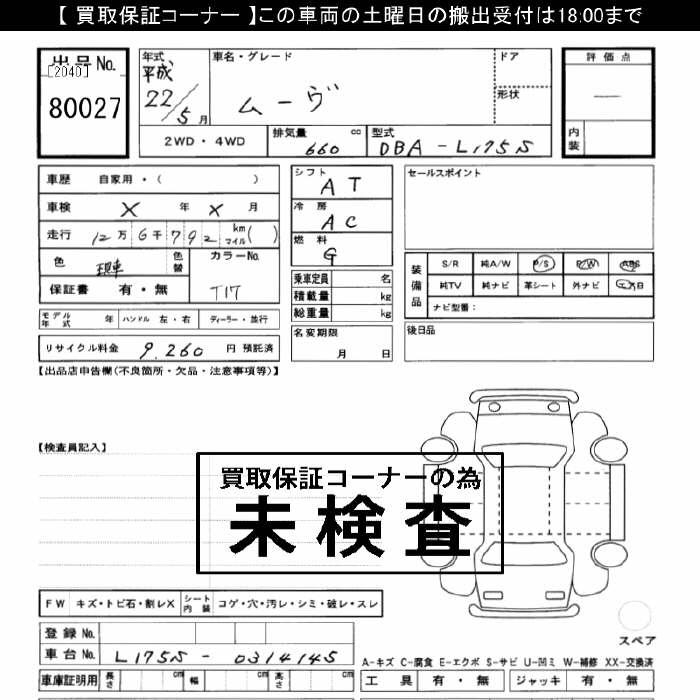 【 買取保証コーナー 】この車両の土曜日の搬出受付は18:00まで
出品No. 年式 車名・グレード ドア 評価点
[2040] 平成
80027 22/5月 ムーヴ 形状 —
2WD・4WD 排気量 cc 型式 内装
660 DBA-L175S
車歴 自家用・( ) シフト AT セールスポイント
車検 X 年 X 月 冷房 AC
走行 12万6千792 km マイル( ) 燃料 G
色 現車 色替 カラーNo. 装備品 S/R 純A/W P/S P/W ABS
保証書 有・無 T17 乗車定員 名 純TV 純ナビ 革シート 外ナビ
積載量 kg ナビ型番:
モデル年式 年 ハンドル 左・右 ディーラー・並行 総重量 kg
リサイクル料金 9,260 円 預託済 名変期限 月 日 後日品
【出品店申告欄(不良箇所・欠品・注意事項等)】
【検査員記入】
買取保証コーナーの為
未検査
FW キズ・トビ石・割レX シート内装 コゲ・穴・汚レ・シミ・破レ・スレ
スペア
登録No.
車台No. L175S - 0314145
A-キズ C-腐食 E-エクボ S-サビ U-凹ミ W-補修 XX-交換済
車庫証明用 長さ cm 幅 cm 高さ cm 工具 有・無 ジャッキ 有・無